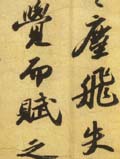 塵飛失
覺而賦之